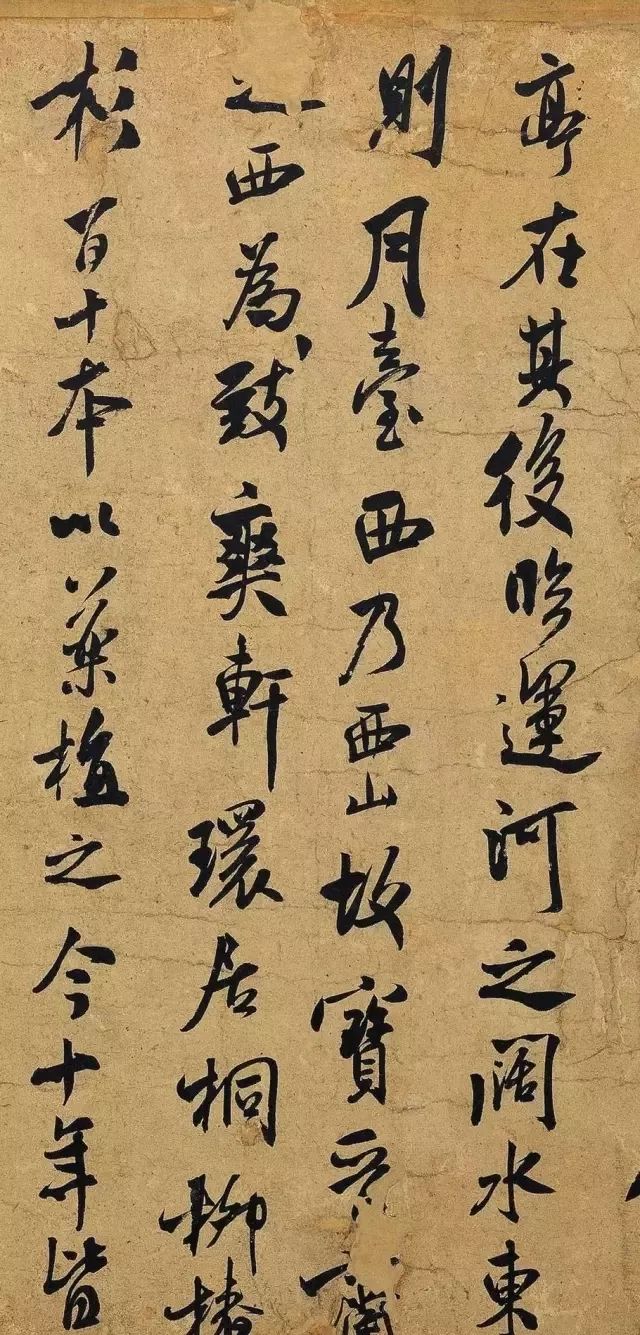 亭在其後臨運河之闊水東
則月臺西乃西山故寶晉齋
之西為致爽軒環居桐柳椿
杉百十本以藥植之今十年皆